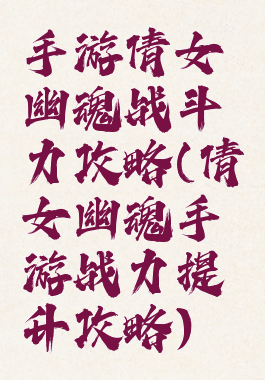 手游倩女
幽魂战斗
力攻略(倩
女幽魂手
游战力提
升攻略)